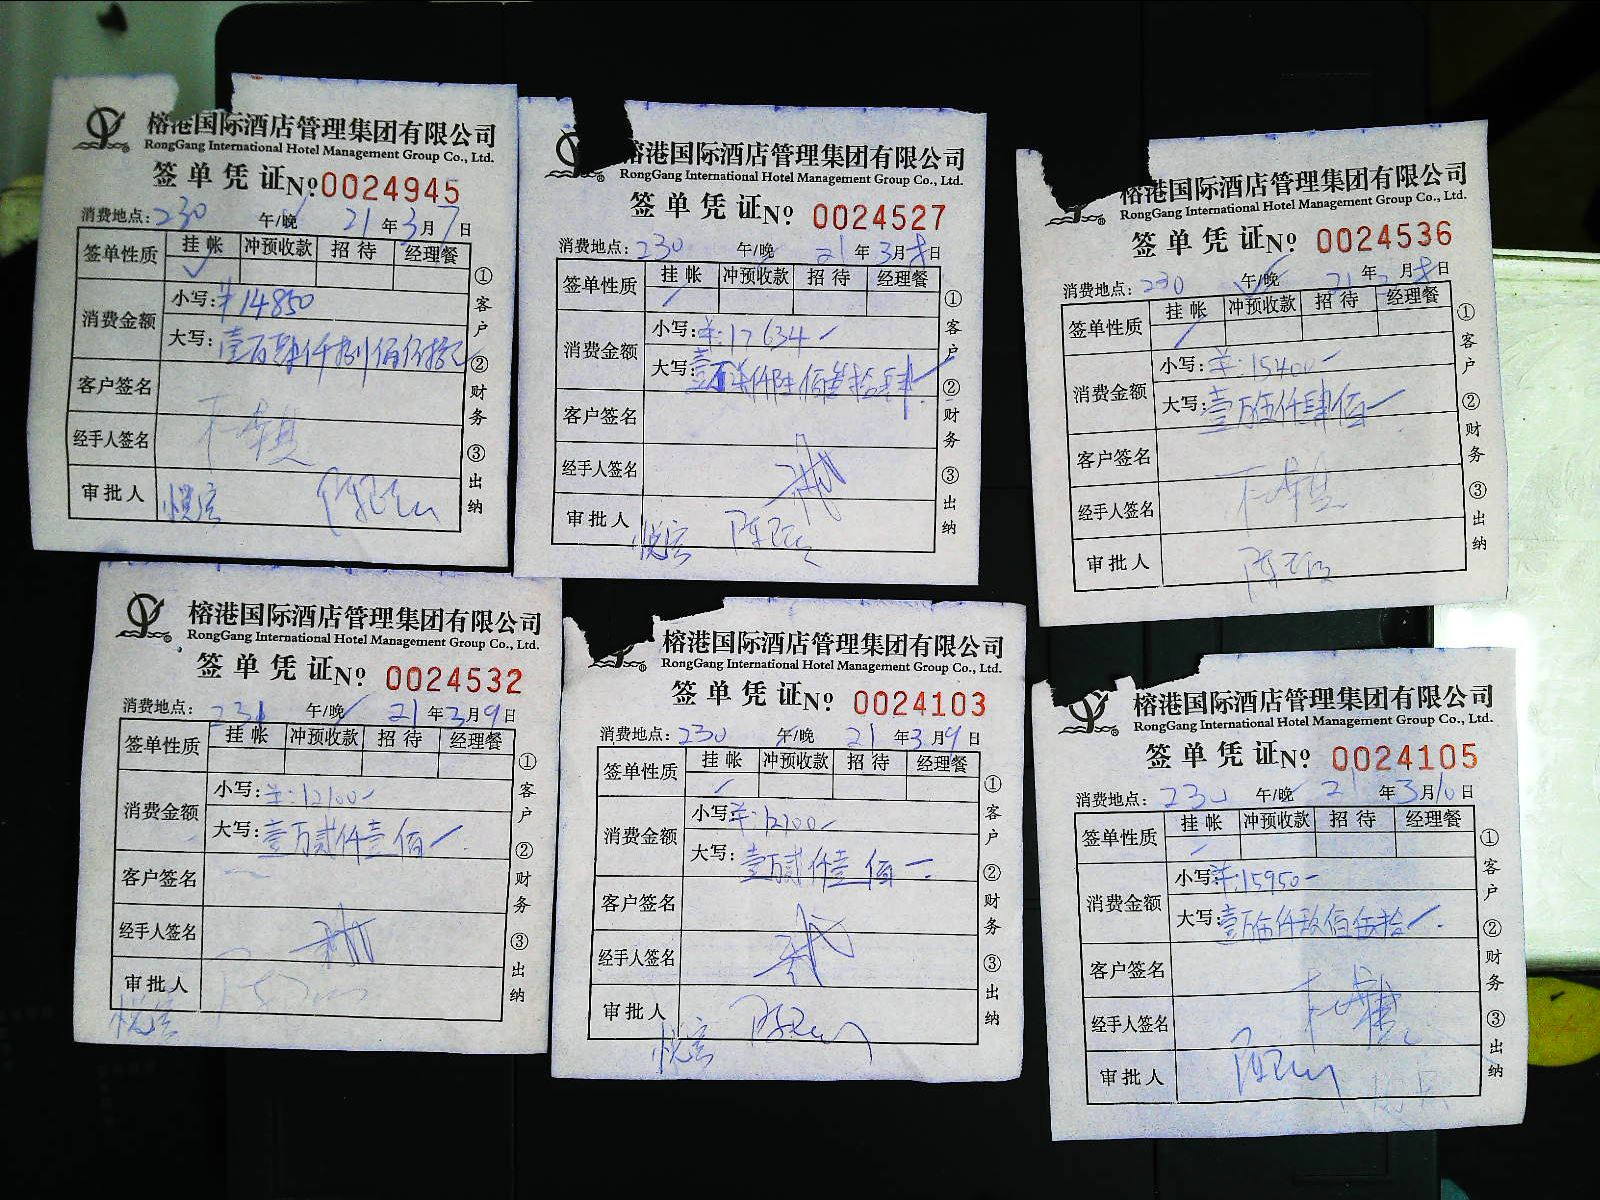 榕港国际酒店管理集团有限公司
RongGang International Hotel Management Group Co., Ltd.
签单凭证 №0024945
消费地点: 230 午/晚 21年3月7日
签单性质 挂帐 冲预收款 招待 经理餐
消费金额 小写: ¥14850
大写: 壹万肆仟捌佰伍拾元
客户签名
经手人签名
审批人
①客户 ②财务 ③出纳
榕港国际酒店管理集团有限公司
RongGang International Hotel Management Group Co., Ltd.
签单凭证 № 0024527
消费地点: 230 午/晚 21年3月8日
签单性质 挂帐 冲预收款 招待 经理餐
消费金额 小写: ¥:17634
大写: 壹万柒仟陆佰叁拾肆
客户签名
经手人签名
审批人
①客户 ②财务 ③出纳
榕港国际酒店管理集团有限公司
RongGang International Hotel Management Group Co., Ltd.
签单凭证 № 0024536
消费地点: 230 午/晚 21年3月8日
签单性质 挂帐 冲预收款 招待 经理餐
消费金额 小写: ¥:15400
大写: 壹万伍仟肆佰
客户签名
经手人签名
审批人
①客户 ②财务 ③出纳
榕港国际酒店管理集团有限公司
RongGang International Hotel Management Group Co., Ltd.
签单凭证 № 0024532
消费地点: 231 午/晚 21年3月9日
签单性质 挂帐 冲预收款 招待 经理餐
消费金额 小写: ¥:12100
大写: 壹万贰仟壹佰
客户签名
经手人签名
审批人
①客户 ②财务 ③出纳
榕港国际酒店管理集团有限公司
RongGang International Hotel Management Group Co., Ltd.
签单凭证 № 0024103
消费地点: 230 午/晚 21年3月9日
签单性质 挂帐 冲预收款 招待 经理餐
消费金额 小写: ¥:12100
大写: 壹万贰仟壹佰
客户签名
经手人签名
审批人
①客户 ②财务 ③出纳
榕港国际酒店管理集团有限公司
RongGang International Hotel Management Group Co., Ltd.
签单凭证 № 0024105
消费地点: 230 午/晚 21年3月10日
签单性质 挂帐 冲预收款 招待 经理餐
消费金额 小写: ¥:15950
大写: 壹万伍仟玖佰伍拾
客户签名
经手人签名
审批人
①客户 ②财务 ③出纳